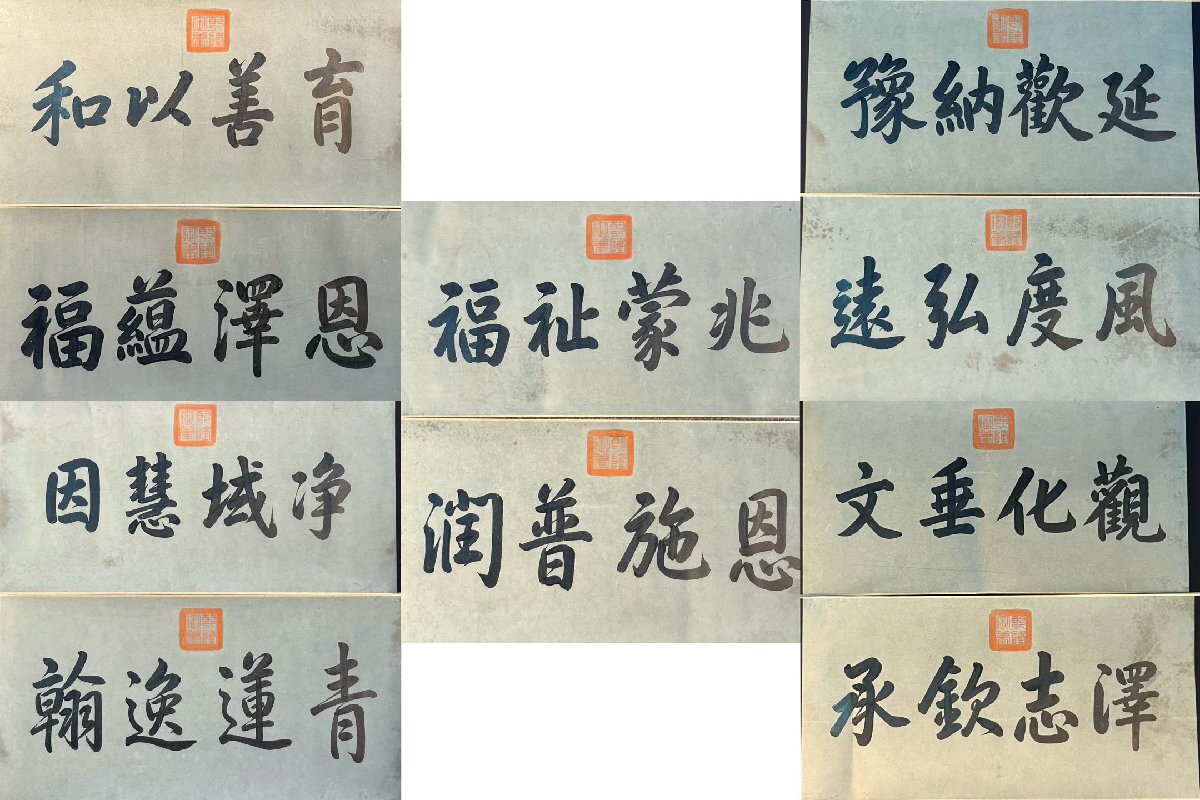 育善以和
恩澤蘊福
净域慧因
青蓮逸翰
兆蒙祉福
恩施普潤
延歡納豫
風度弘遠
觀化垂文
澤志欽承